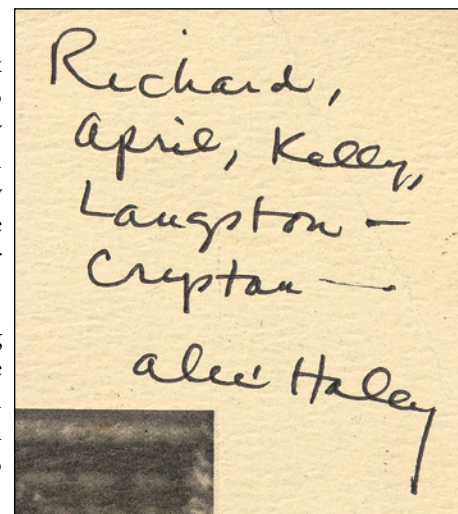 Richard,
April, Kelly,
Langston —
Cryptan —
Alex Haley